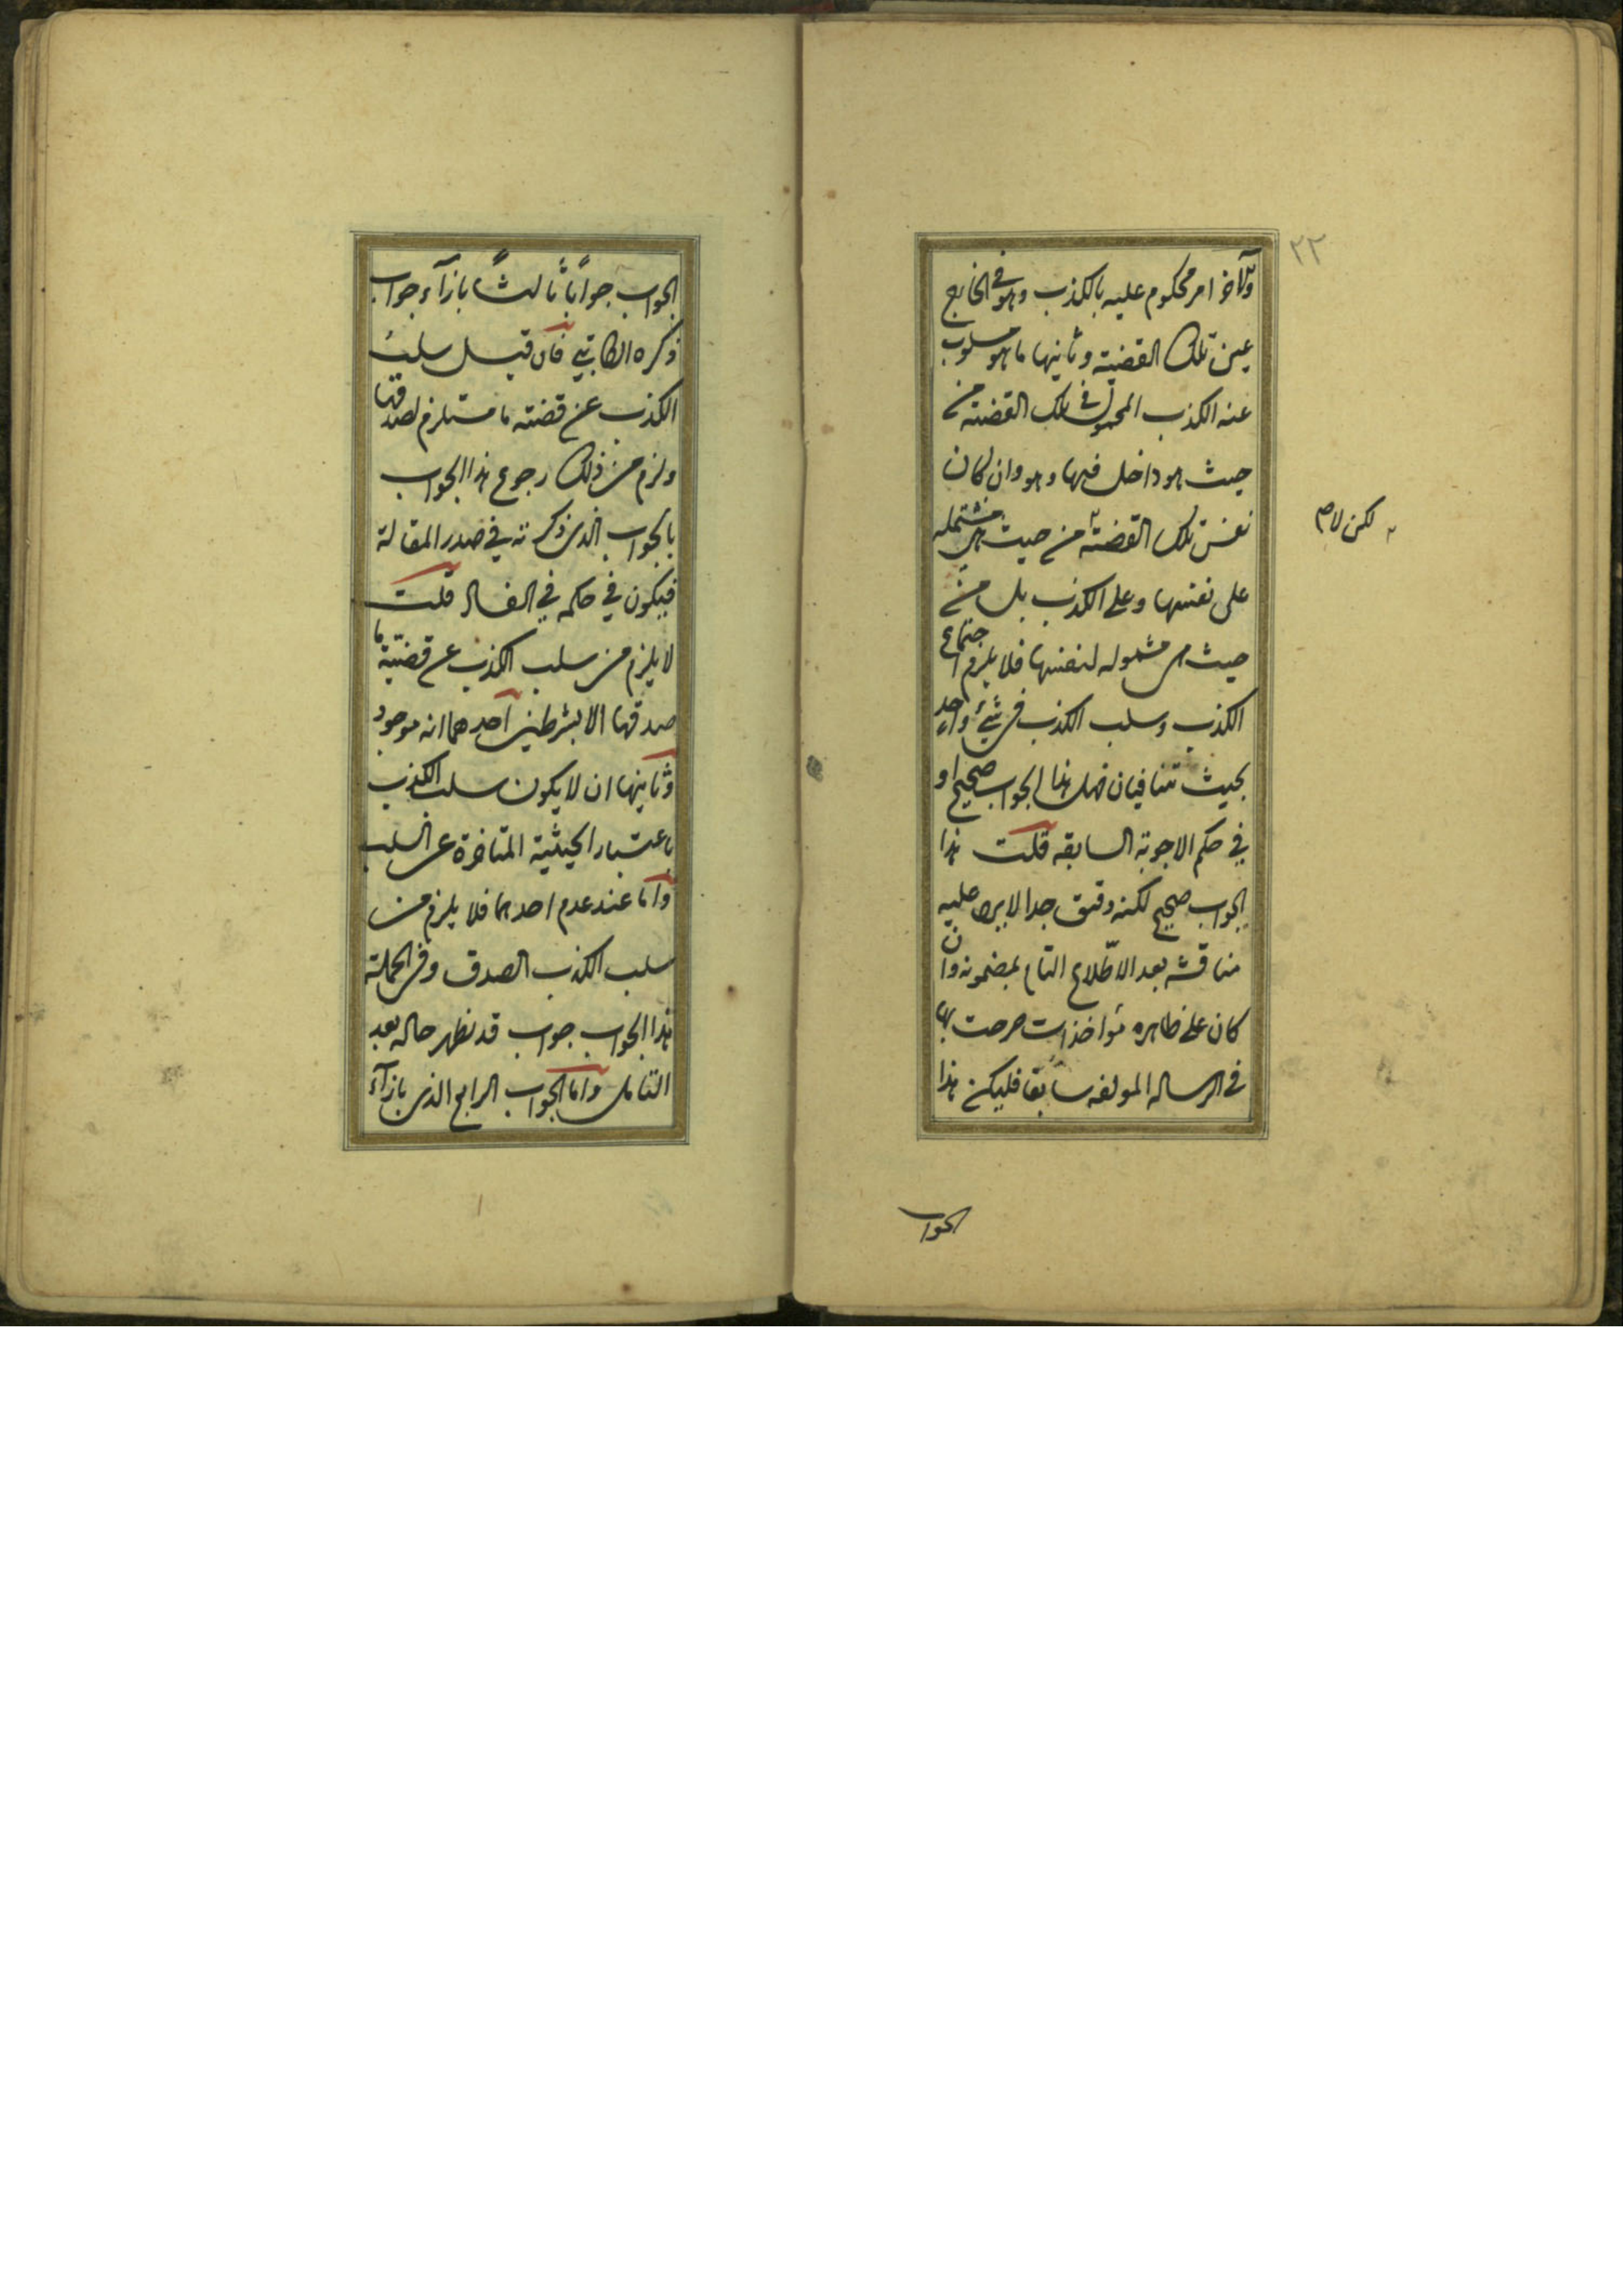 ٢٢
والآخر امر محكوم عليه بالكذب وهو في الخارج
عين تلك القضية وثانيها ما هو مسلوب
عنه الكذب المحمول في تلك القضية من
حيث هو داخل فيها وهو وان كان
نفس تلك القضية من حيث هي مشتملة
لكن لا م
على نفسها وعلى الكذب بل من
حيث هي مشمولة لنفسها فلا يلزم اجتماع
الكذب وسلب الكذب في شيء واحد
بحيث تتنافيان فهل هذا الجواب صحيح او
في حكم الاجوبة السابقه قلت هذا
الجواب صحيح لكنه دقيق جدا لا يرد عليه
مناقشة بعد الاطّلاع التام بمضمونه وان
كان على ظاهره مؤاخذات صرحت بها
في الرساله المولفه سابقا فليكن هذا
الجواب
الجواب جواباً ثالثاً بازآء جواب
ذكره الكاتبي فان قيل سلب
الكذب عن قضية ما مستلزم لصدقها
ولزم من ذلك رجوع هذا الجواب
بالجواب الذي ذكرته في صدر المقالة
فيكون في حكمه في الفساد قلت
لا يلزم من سلب الكذب عن قضية ما
صدقها الا بشرطين احدهما انه موجود
وثانيها ان لا يكون سلب الكذب
باعتبار الحيثية المتاخرة عن السلب
واما عند عدم احدهما فلا يلزم من
سلب الكذب الصدق وفي الجملة
هذا الجواب جواب قد نظهر حاله بعد
التامل واما الجواب الرابع الذي بازآء